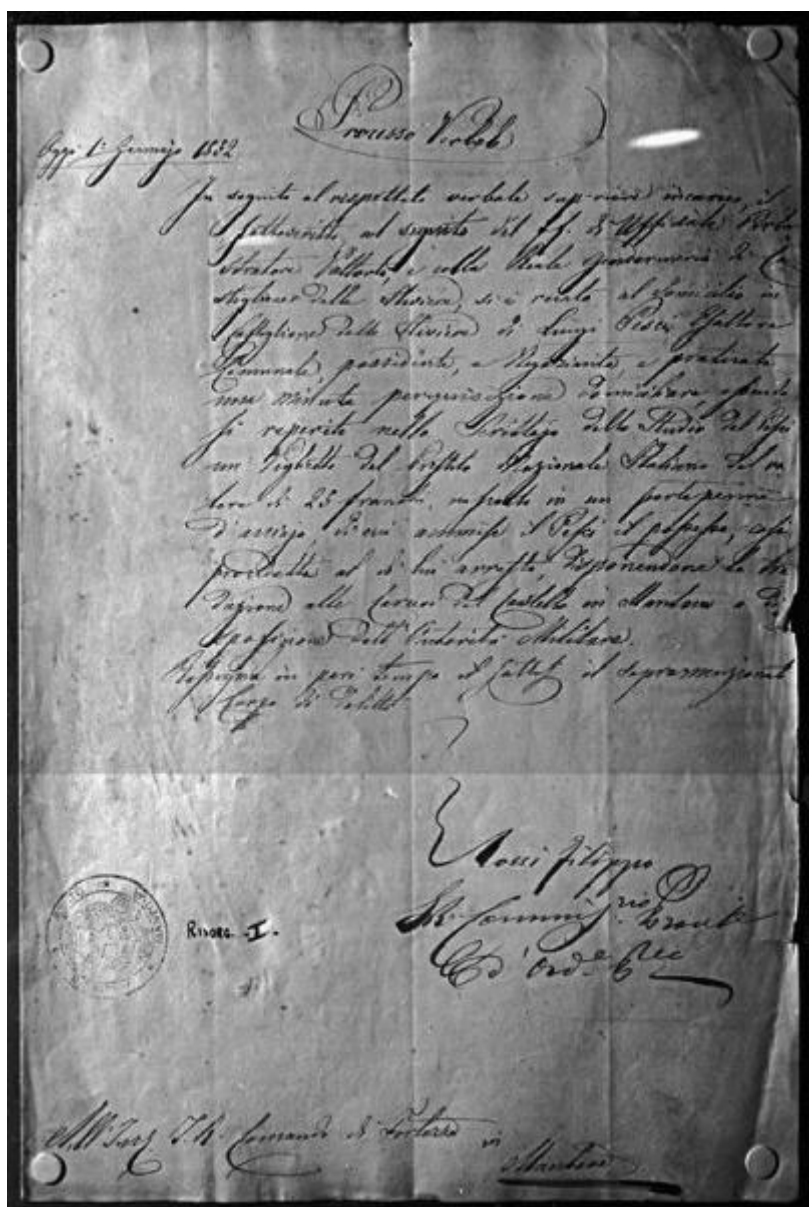 Processo Verbale
Oggi 1° Gennajo 1852
In seguito al rispettato verbale superiore incarico, il
sottoscritto, al seguito del ff. di Uffiziale
e colla Reale Gendarmeria di Ca
stiglione delle Stiviere, si è recato al domicilio in
Castiglione delle Stiviere di Luigi Pesci Esattore
Comunale, possidente, e Negoziante, e praticata
una minuta perquisizione domiciliare,
fu reperito nello Scrittojo dello Studio del Pesci
un Viglietto del Prestito Nazionale Italiano del va
lore di 25 franchi, in un portapenne
d'acciajo, di cui ammise il Pesci il possesso, così
procedette al di lui arresto, disponendone la tra
duzione alle Carceri del Castello in Mantova a di
sposizione dell'Autorità Militare.
in pari tempo il soprammenzionato
Corpo di delitto
Rossi Filippo
d'Ord.e
RISORG. I.
All'Incl. I. R. Comando di Fortezza
in
Mantova